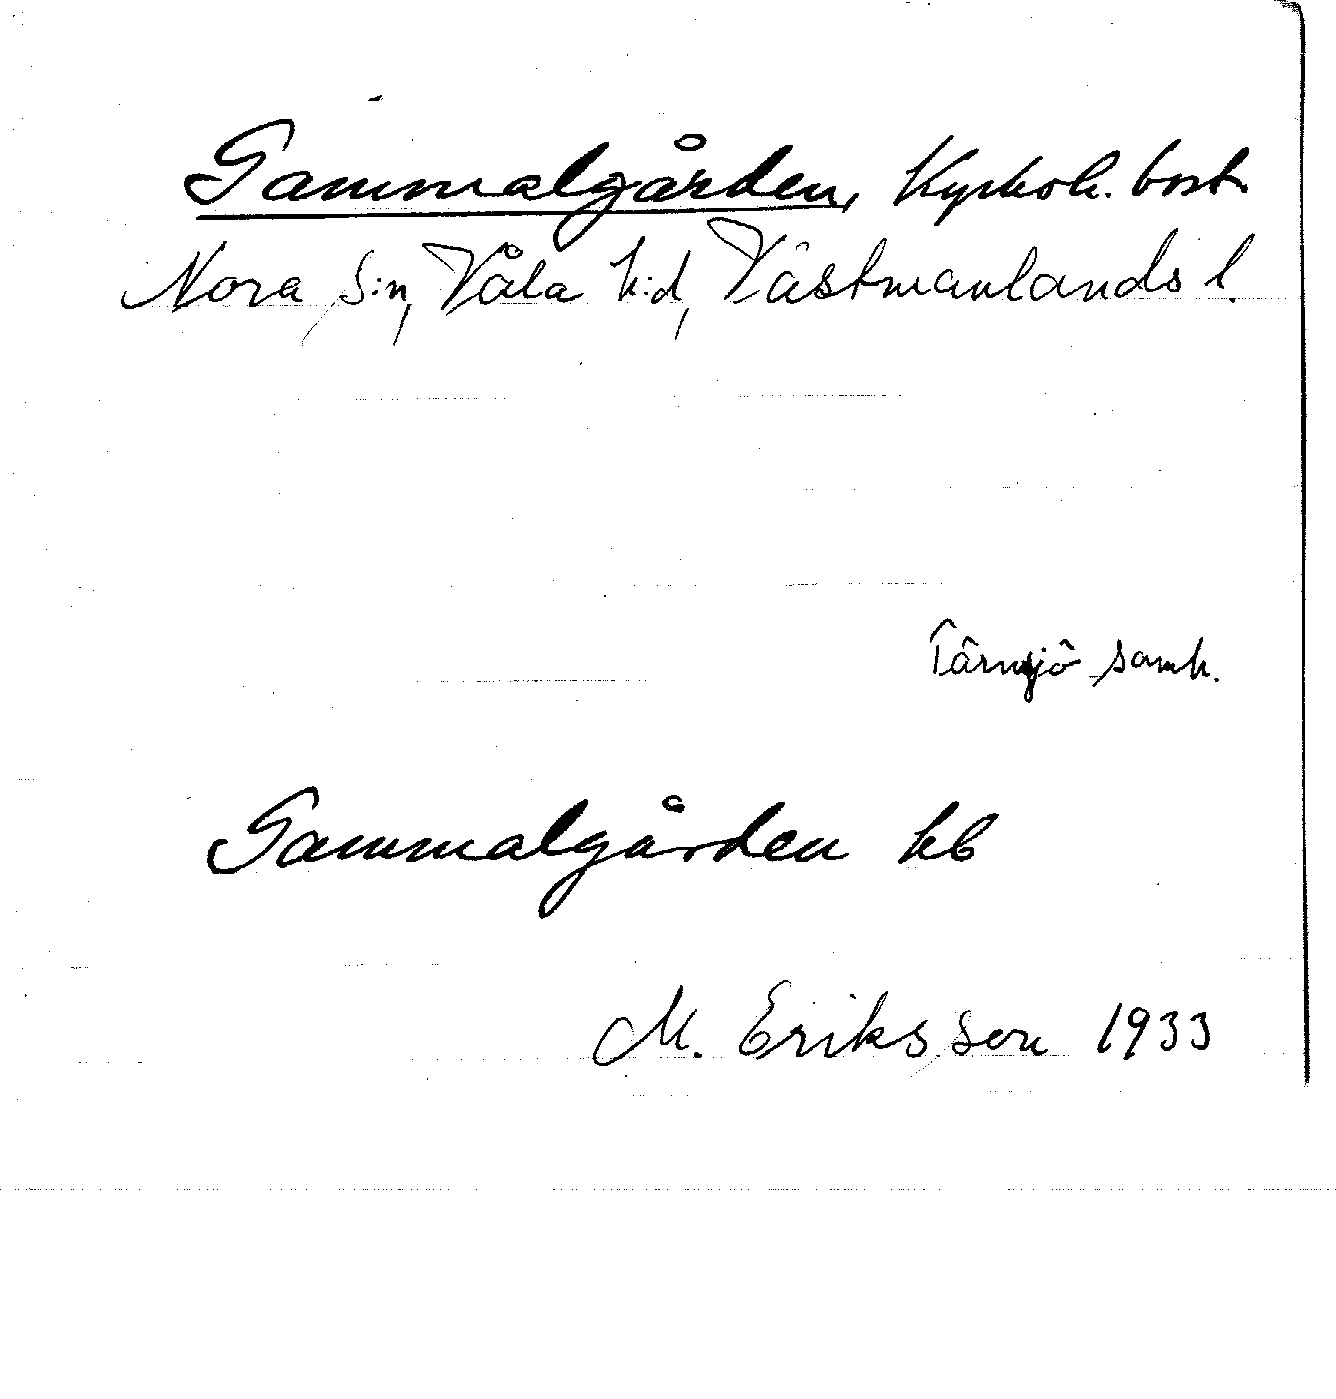 Gammalgården, Kyrkoh. bost.
Nora s:n, Våla h:d, Västmanlands l.
Tärnsjö samh.
Gammalgården kb
M. Eriksson 1933